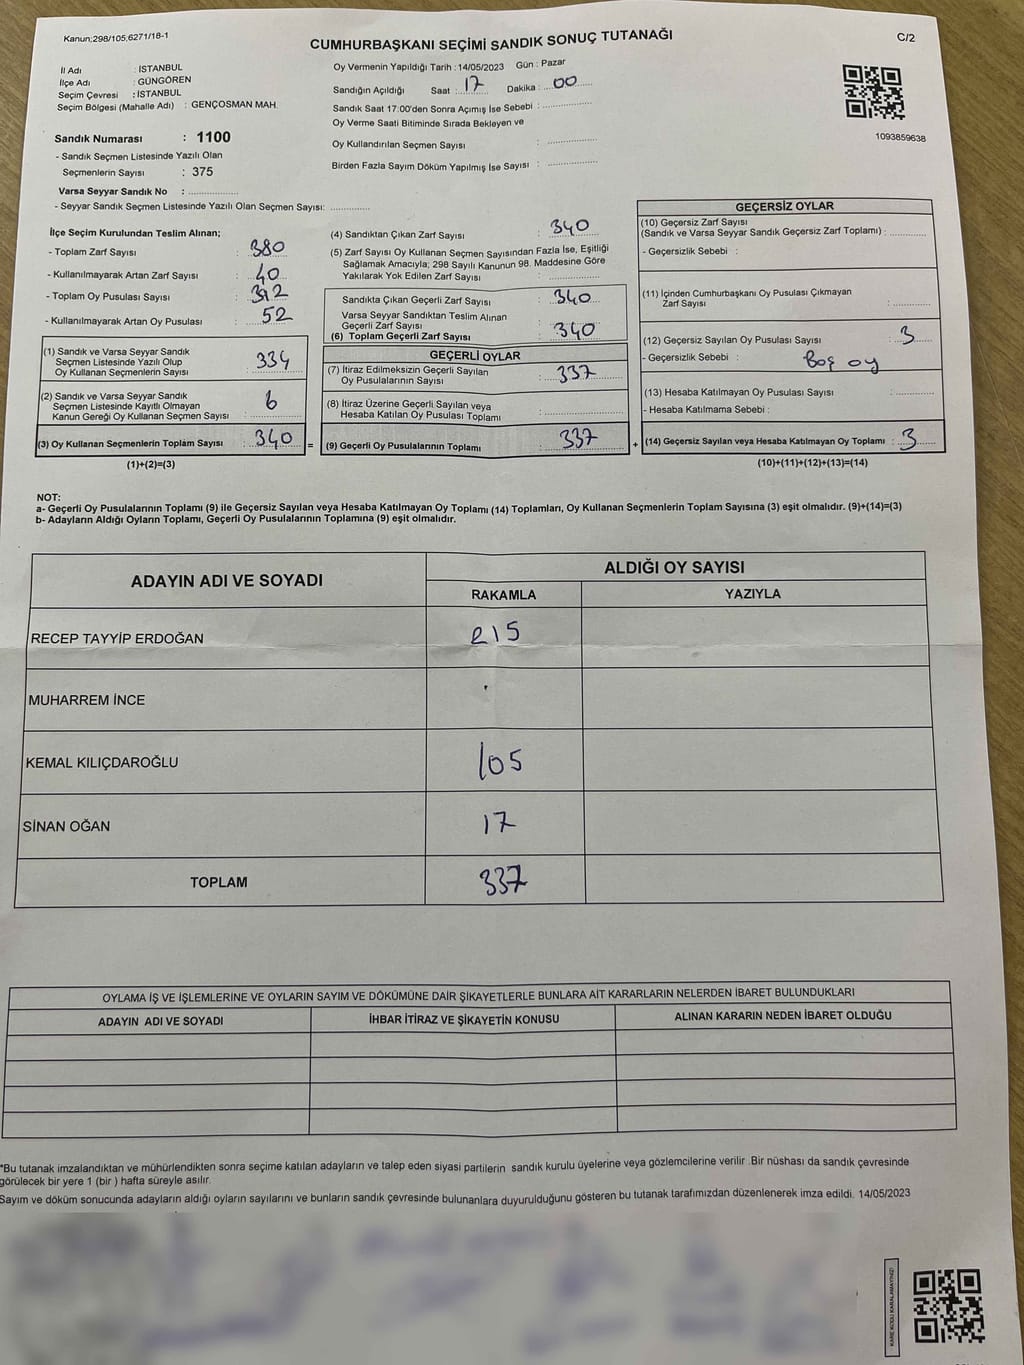 Kanun;298/105;6271/18-1
CUMHURBAŞKANI SEÇİMİ SANDIK SONUÇ TUTANAĞI
C/2
İl Adı : İSTANBUL
İlçe Adı : GÜNGÖREN
Seçim Çevresi : İSTANBUL
Seçim Bölgesi (Mahalle Adı) : GENÇOSMAN MAH.
Sandık Numarası : 1100
- Sandık Seçmen Listesinde Yazılı Olan
Seçmenlerin Sayısı : 375
Varsa Seyyar Sandık No : ..................
- Seyyar Sandık Seçmen Listesinde Yazılı Olan Seçmen Sayısı: ..............
Oy Vermenin Yapıldığı Tarih :14/05/2023 Gün : Pazar
Sandığın Açıldığı Saat : 17 Dakika : 00
Sandık Saat 17:00'den Sonra Açımış İse Sebebi : ..................
Oy Verme Saati Bitiminde Sırada Bekleyen ve
Oy Kullandırılan Seçmen Sayısı : ..................
Birden Fazla Sayım Döküm Yapılmış İse Sayısı : ..................
1093859638
İlçe Seçim Kurulundan Teslim Alınan;
- Toplam Zarf Sayısı : 380
- Kullanılmayarak Artan Zarf Sayısı : 40
- Toplam Oy Pusulası Sayısı : 392
- Kullanılmayarak Artan Oy Pusulası : 52
(1) Sandık ve Varsa Seyyar Sandık
Seçmen Listesinde Yazılı Olup
Oy Kullanan Seçmenlerin Sayısı : 334
(2) Sandık ve Varsa Seyyar Sandık
Seçmen Listesinde Kayıtlı Olmayan
Kanun Gereği Oy Kullanan Seçmen Sayısı : 6
(3) Oy Kullanan Seçmenlerin Toplam Sayısı : 340 =
(1)+(2)=(3)
(4) Sandıktan Çıkan Zarf Sayısı : 340
(5) Zarf Sayısı Oy Kullanan Seçmen Sayısından Fazla İse, Eşitliği
Sağlamak Amacıyla; 298 Sayılı Kanunun 98. Maddesine Göre
Yakılarak Yok Edilen Zarf Sayısı : ..................
Sandıkta Çıkan Geçerli Zarf Sayısı : 340
Varsa Seyyar Sandıktan Teslim Alınan
Geçerli Zarf Sayısı :
(6) Toplam Geçerli Zarf Sayısı 340
GEÇERLİ OYLAR
(7) İtiraz Edilmeksizin Geçerli Sayılan
Oy Pusulalarının Sayısı : 337
(8) İtiraz Üzerine Geçerli Sayılan veya
Hesaba Katılan Oy Pusulası Toplamı : ..................
(9) Geçerli Oy Pusulalarının Toplamı : 337 +
GEÇERSİZ OYLAR
(10) Geçersiz Zarf Sayısı
(Sandık ve Varsa Seyyar Sandık Geçersiz Zarf Toplamı) : ............
- Geçersizlik Sebebi :
(11) İçinden Cumhurbaşkanı Oy Pusulası Çıkmayan
Zarf Sayısı : ............
(12) Geçersiz Sayılan Oy Pusulası Sayısı : 3
- Geçersizlik Sebebi : Boş oy
(13) Hesaba Katılmayan Oy Pusulası Sayısı : ............
- Hesaba Katılmama Sebebi :
(14) Geçersiz Sayılan veya Hesaba Katılmayan Oy Toplamı : 3
(10)+(11)+(12)+(13)=(14)
NOT:
a- Geçerli Oy Pusulalarının Toplamı (9) ile Geçersiz Sayılan veya Hesaba Katılmayan Oy Toplamı (14) Toplamları, Oy Kullanan Seçmenlerin Toplam Sayısına (3) eşit olmalıdır. (9)+(14)=(3)
b- Adayların Aldığı Oyların Toplamı, Geçerli Oy Pusulalarının Toplamına (9) eşit olmalıdır.
ADAYIN ADI VE SOYADI
ALDIĞI OY SAYISI
RAKAMLA YAZIYLA
RECEP TAYYİP ERDOĞAN 215
MUHARREM İNCE
KEMAL KILIÇDAROĞLU 105
SİNAN OĞAN 17
TOPLAM 337
OYLAMA İŞ VE İŞLEMLERİNE VE OYLARIN SAYIM VE DÖKÜMÜNE DAİR ŞİKAYETLERLE BUNLARA AİT KARARLARIN NELERDEN İBARET BULUNDUKLARI
ADAYIN ADI VE SOYADI İHBAR İTİRAZ VE ŞİKAYETİN KONUSU ALINAN KARARIN NEDEN İBARET OLDUĞU
*Bu tutanak imzalandıktan ve mühürlendikten sonra seçime katılan adayların ve talep eden siyasi partilerin sandık kurulu üyelerine veya gözlemcilerine verilir .Bir nüshası da sandık çevresinde
görülecek bir yere 1 (bir ) hafta süreyle asılır.
Sayım ve döküm sonucunda adayların aldığı oyların sayılarını ve bunların sandık çevresinde bulunanlara duyurulduğunu gösteren bu tutanak tarafımızdan düzenlenerek imza edildi. 14/05/2023
KARE KODU KARALAMAYINIZ!